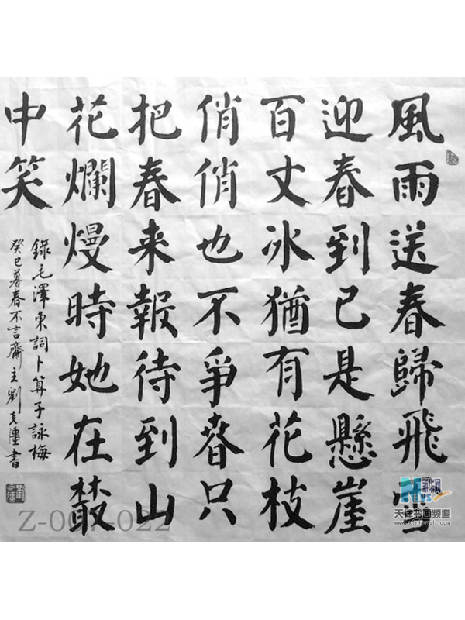 風雨送春歸飛雪
迎春到已是懸崖
百丈冰猶有花枝
俏俏也不爭春只
把春来報待到山
花爛熳時她在叢
中笑
錄毛澤東詞卜算子詠梅
癸巳暮春不言齋主劉書